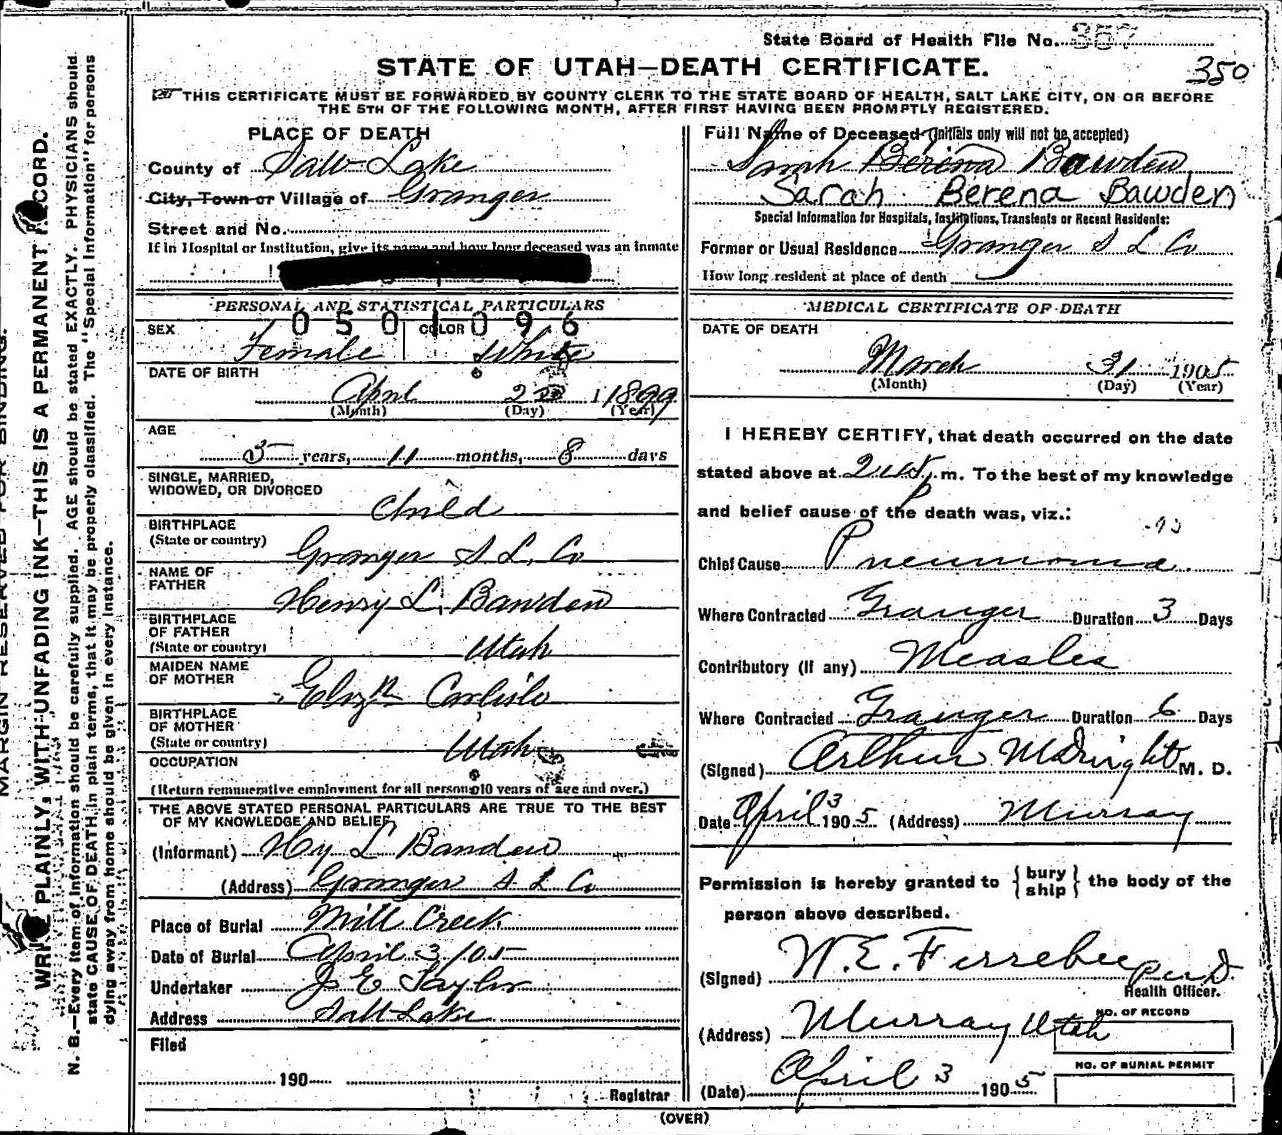 State Board of Health File No. 357
350
STATE OF UTAH—DEATH CERTIFICATE.
THIS CERTIFICATE MUST BE FORWARDED BY COUNTY CLERK TO THE STATE BOARD OF HEALTH, SALT LAKE CITY, ON OR BEFORE
THE 5TH OF THE FOLLOWING MONTH, AFTER FIRST HAVING BEEN PROMPTLY REGISTERED.
MARGIN RESERVED FOR BINDING.
WRITE PLAINLY, WITH UNFADING INK—THIS IS A PERMANENT RECORD.
N. B.—Every item of information should be carefully supplied. AGE should be stated EXACTLY. PHYSICIANS should
state CAUSE OF DEATH in plain terms, that it may be properly classified. The "Special Information" for persons
dying away from home should be given in every instance.
PLACE OF DEATH
County of Salt Lake
City, Town or Village of Granger
Street and No.
If in Hospital or Institution, give its name and how long deceased was an inmate
PERSONAL AND STATISTICAL PARTICULARS
0501096
SEX Female COLOR White
DATE OF BIRTH
April 2 1 1899
(Month) (Day) (Year)
AGE
5 years, 11 months, 8 days
SINGLE, MARRIED,
WIDOWED, OR DIVORCED
Child
BIRTHPLACE
(State or country)
Granger S L. Co
NAME OF
FATHER
Henry L. Bawden
BIRTHPLACE
OF FATHER
(State or country)
Utah
MAIDEN NAME
OF MOTHER
Carlisle
BIRTHPLACE
OF MOTHER
(State or country)
Utah
OCCUPATION
(Return remunerative employment for all persons 10 years of age and over.)
THE ABOVE STATED PERSONAL PARTICULARS ARE TRUE TO THE BEST
OF MY KNOWLEDGE AND BELIEF
(Informant) Hy L Bawden
(Address) Granger S L Co
Place of Burial Mill Creek
Date of Burial April 3/05
Undertaker J E Taylor
Address Salt Lake
Filed
190
Registrar
Full Name of Deceased (Initials only will not be accepted)
Sarah Berena Bawden
Sarah Berena Bawden
Special Information for Hospitals, Institutions, Transients or Recent Residents:
Former or Usual Residence Granger S L Co
How long resident at place of death
MEDICAL CERTIFICATE OF DEATH
DATE OF DEATH
March 31 1905
(Month) (Day) (Year)
I HEREBY CERTIFY, that death occurred on the date
stated above at P m. To the best of my knowledge
and belief cause of the death was, viz.:
Chief Cause Pneumonia
Where Contracted Granger Duration 3 Days
Contributory (If any) Measles
Where Contracted Granger Duration 6 Days
(Signed) Arthur M. D.
Date April 3 1905 (Address) Murray
Permission is hereby granted to {bury ship} the body of the
person above described.
(Signed) W. E. Ferrebee per D
Health Officer.
(Address) Murray Utah
NO. OF RECORD
NO. OF BURIAL PERMIT
(Date) April 3 1905
(OVER)